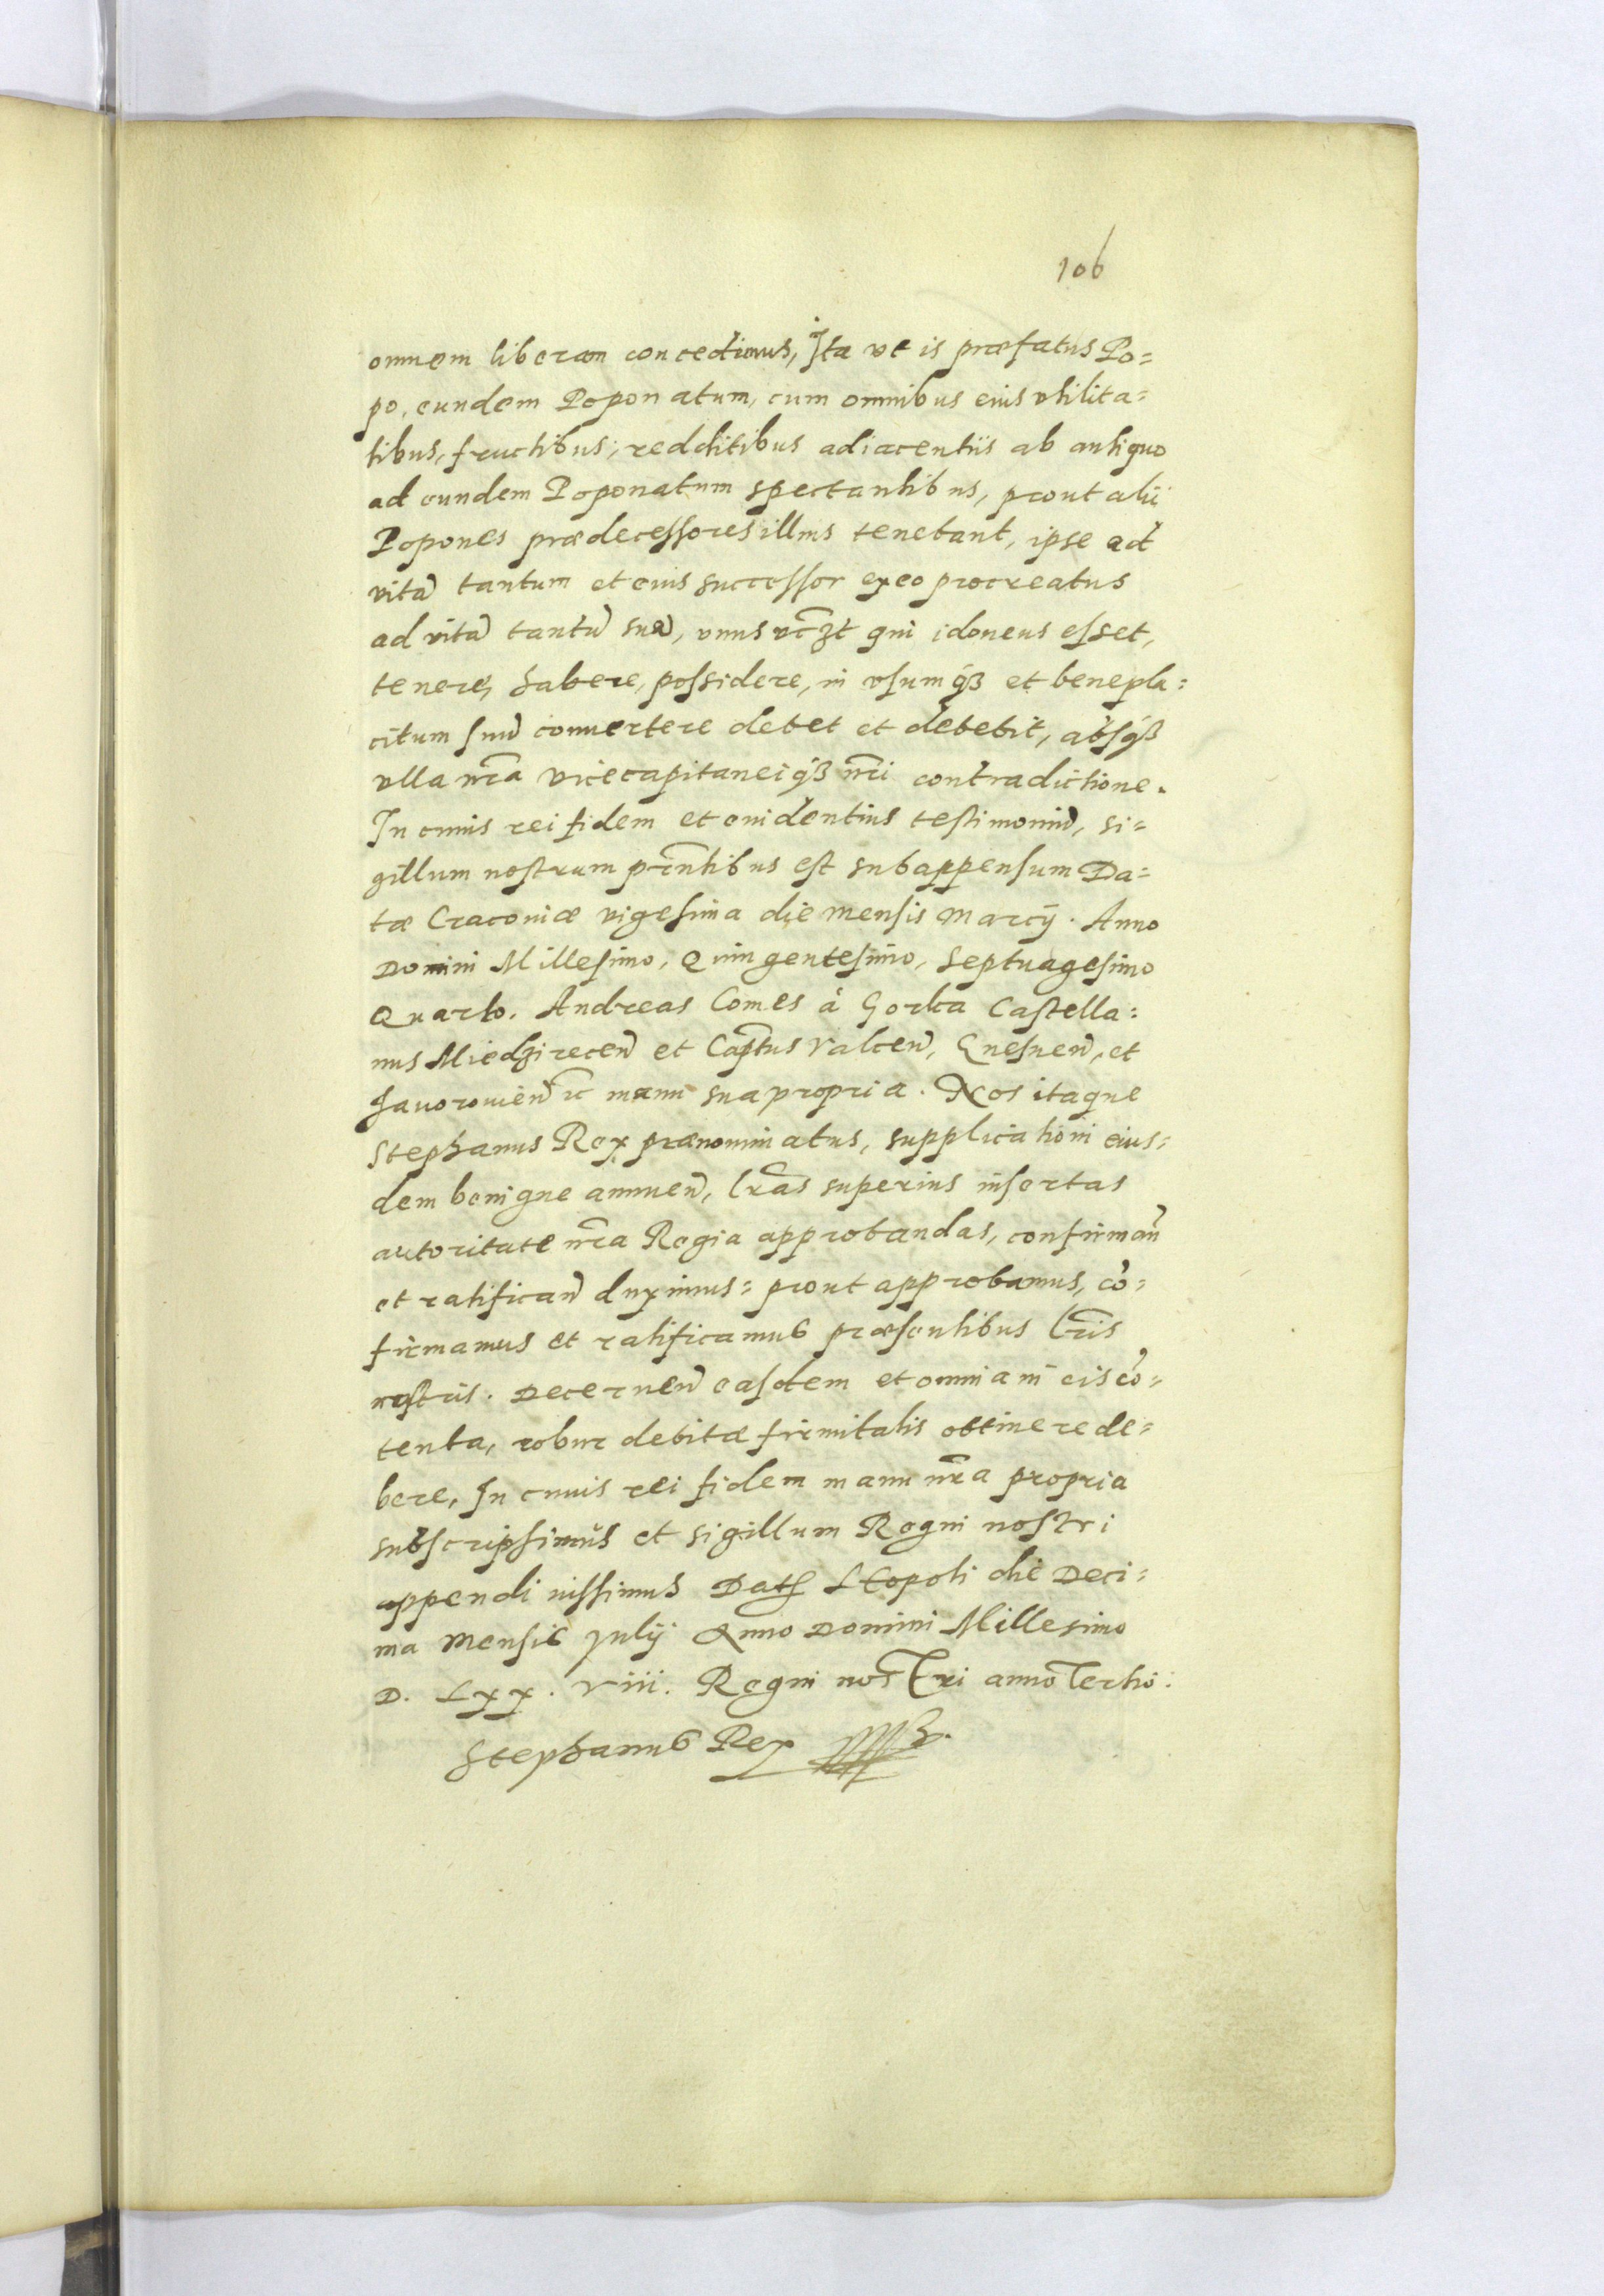 106
omnem liberam concedimus, Ita ut is præfatus Po=
po, eundem Poponatum, cum omnibus eius utilita=
tibus, fructibus, redditibus adiacentiis ab antiquo
ad eundem Poponatum spectantibus, prout alii
Popones prædecessores illius tenebant, ipse ad
vitã tantum et eius successor ex eo procreatus
ad vitã tantũ suã, unus včzt qui idoneus esset,
tenere, habere, possidere, in usumq3 et benepla=
citum suũ convertere debet et debebit, absq3
ulla nr̃a vicecapitaneiq3 nr̃i contradictione.
In cuius rei fidem et evidentius testimoniũ, si=
gillum nostrum pr̃ntibus est subappensum Da=
tæ Cracoviæ vigesima die mensis Marcij. Anno
Domini Millesimo, Quingentesimo, Septuagesimo
Quarto. Andreas Comes à Gorka Castella=
nus Miedzirecen̄ et Capt̃us Valcen̄, Gnesnen̄, et
Javorovien̄ ic̃ manu sua propria. Nos itaque
Stephanus Rex prænominatus, supplicationi eius=
dem benigne annuen̄, lr̃as superius insertas
autoritate nr̃a Regia approbandas, confirman̄
et ratifican̄ duximus= prout approbamus, cõ=
firmamus et ratificamus præsentibus lr̃is
nostris. Decernen̄ easdem et omnia in eis cõ=
tenta, robur debitæ firmitatis obtinere de=
bere, In cuius rei fidem manu nr̃a propria
subscripsimus et sigillum Regni nostri
appendi iussimus Dat Leopoli die Deci=
ma Mensis Julij Anno Domini Millesimo
D. Lxx. viii. Regni nostri anno Tertio.
Stephanus Rex